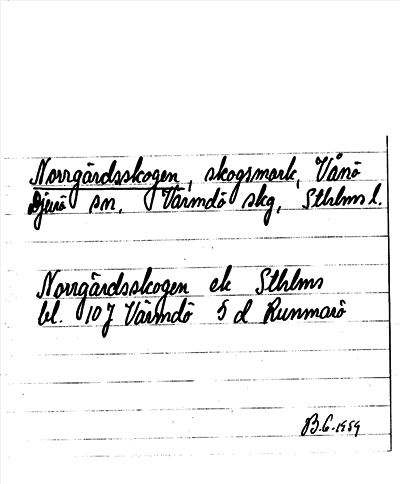 Norrgårdsskogen, skogsmark, Vånö
Djurö sn, Värmdö skg, Sthlms l.
Norrgårdsskogen ek Sthlms
bl. 10 J Värmdö 5 d Runmarö
B.G. 1959